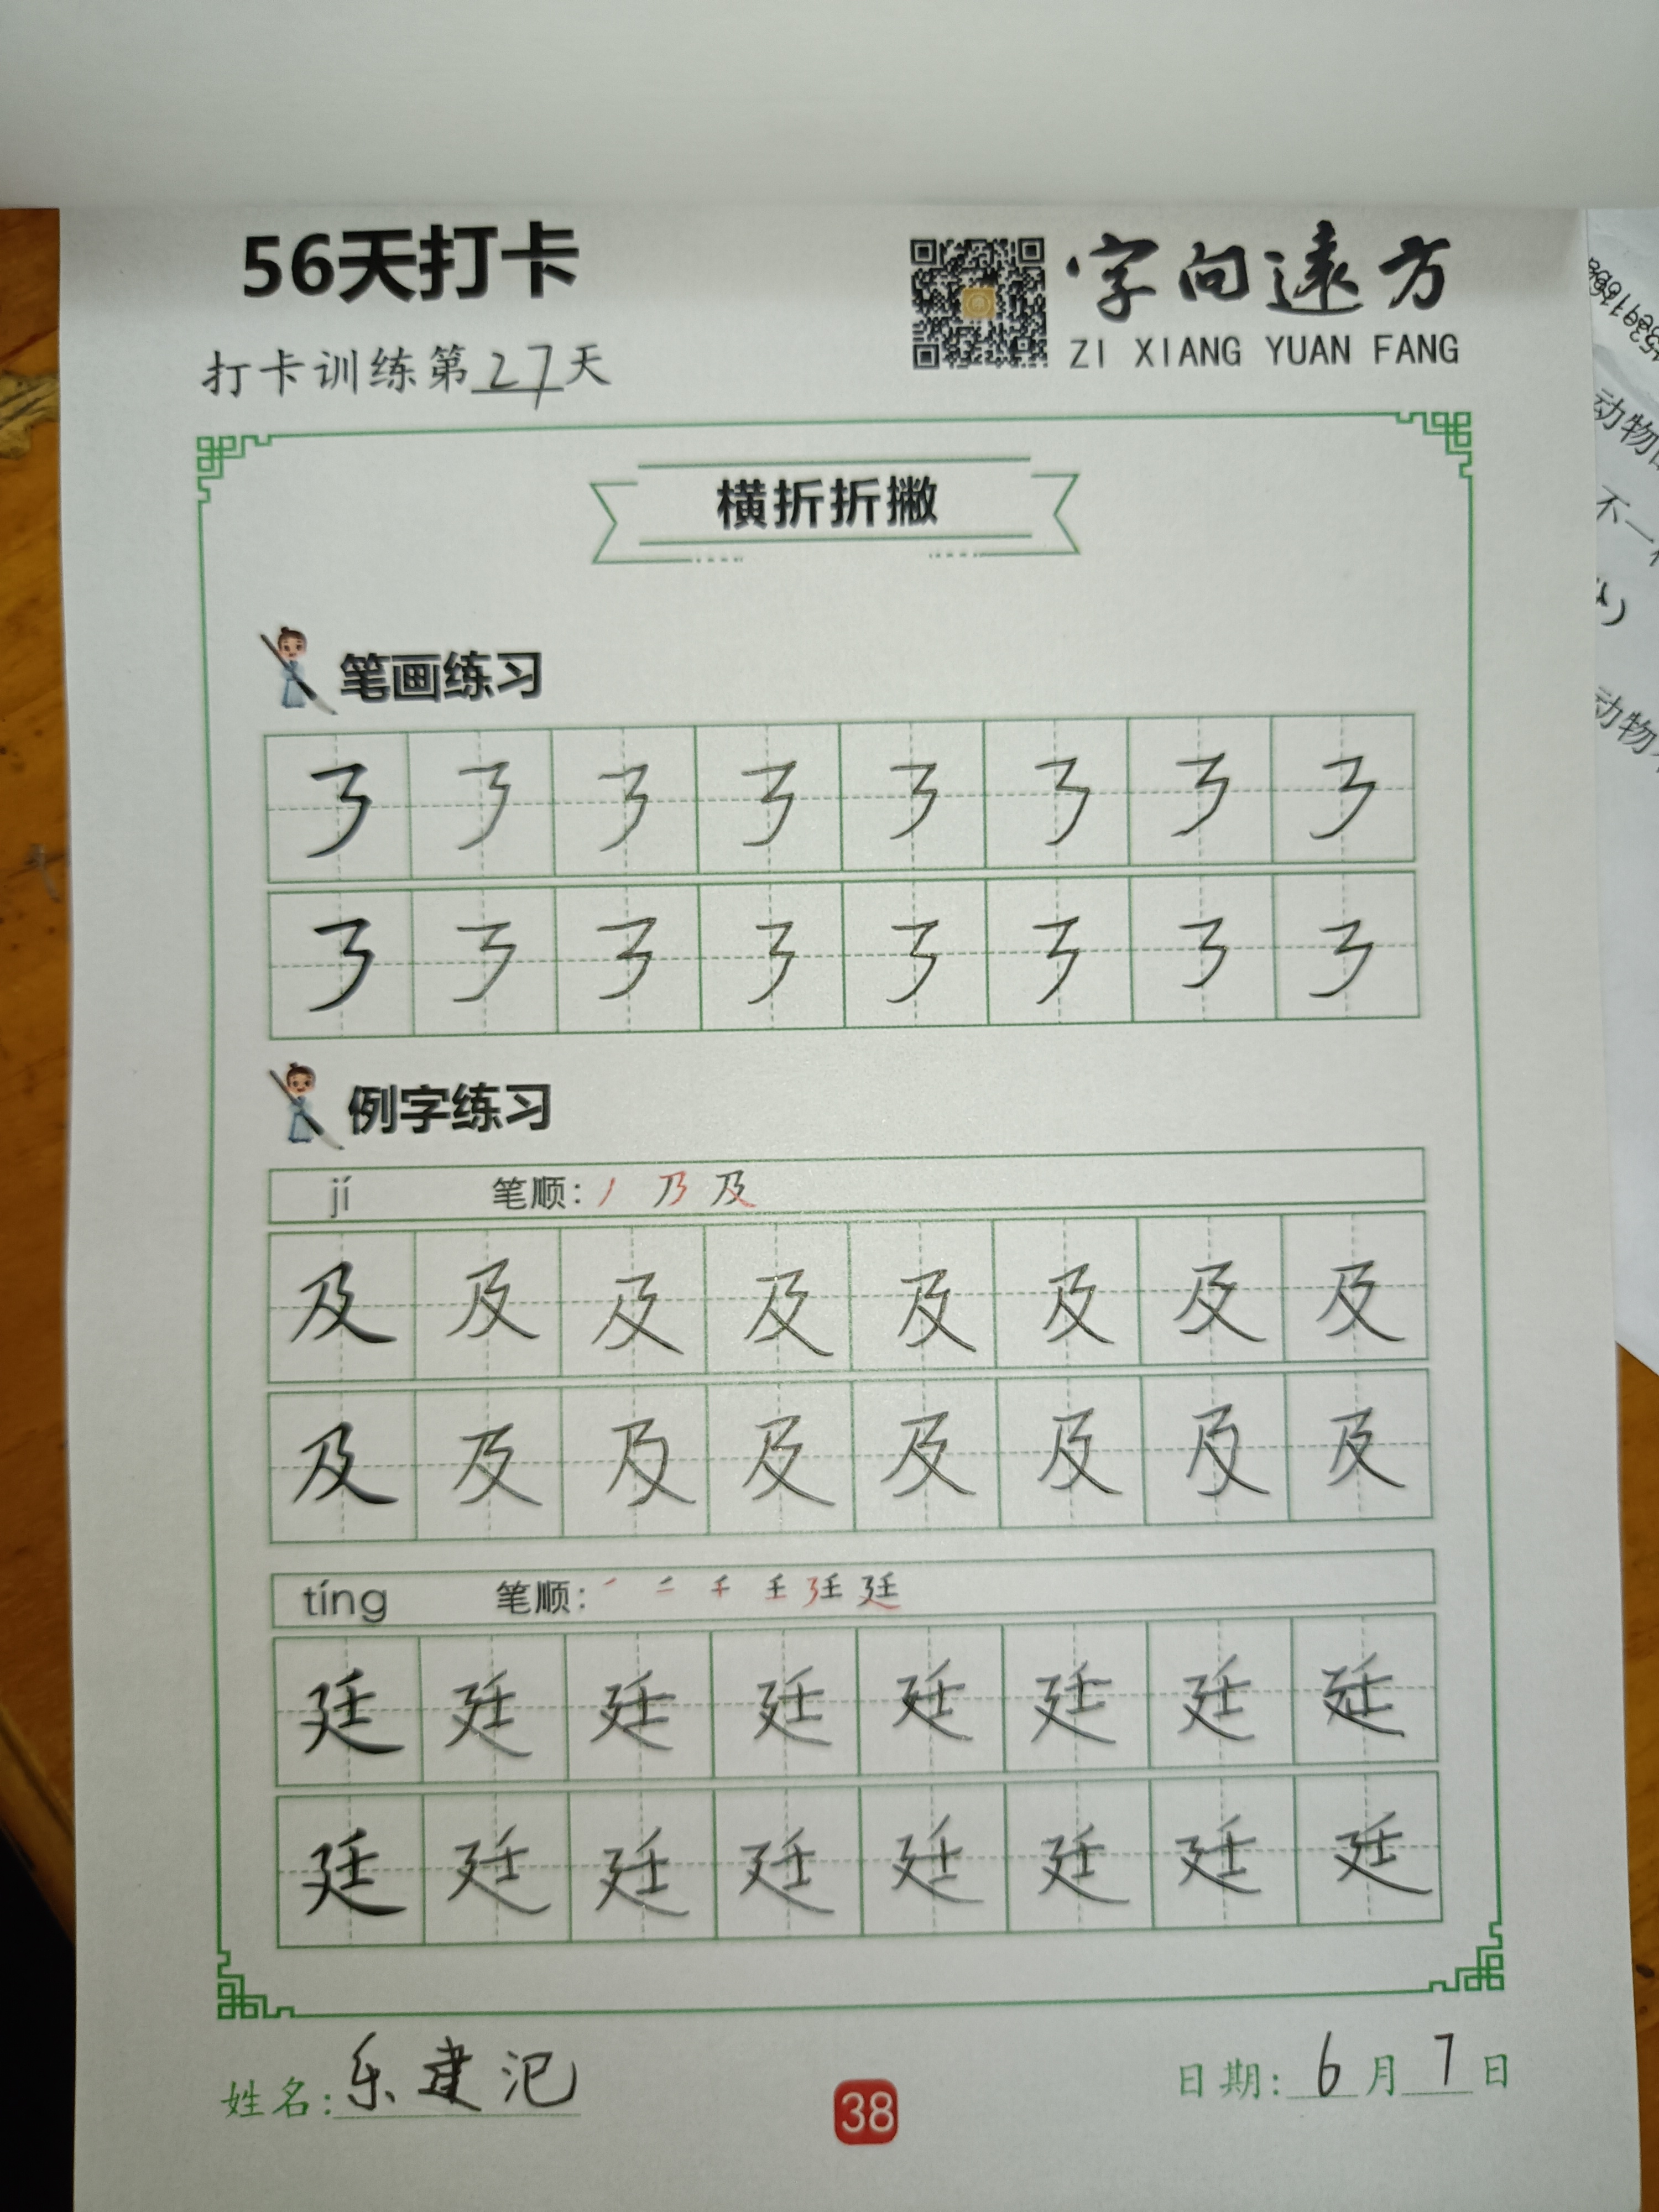 56天打卡
字向遠方
ZI XIANG YUAN FANG
打卡训练第27天
横折折撇
笔画练习
㇋ ㇋ ㇋ ㇋ ㇋ ㇋ ㇋ ㇋
㇋ ㇋ ㇋ ㇋ ㇋ ㇋ ㇋ ㇋
例字练习
jí 笔顺：丿 乃 及
及 及 及 及 及 及 及 及
及 及 及 及 及 及 及 及
tíng 笔顺：
廷 廷 廷 廷 廷 廷 廷 廷
廷 廷 廷 廷 廷 廷 廷 廷
姓名：乐建汜
38
日期：6月7日
动物
不一
动物